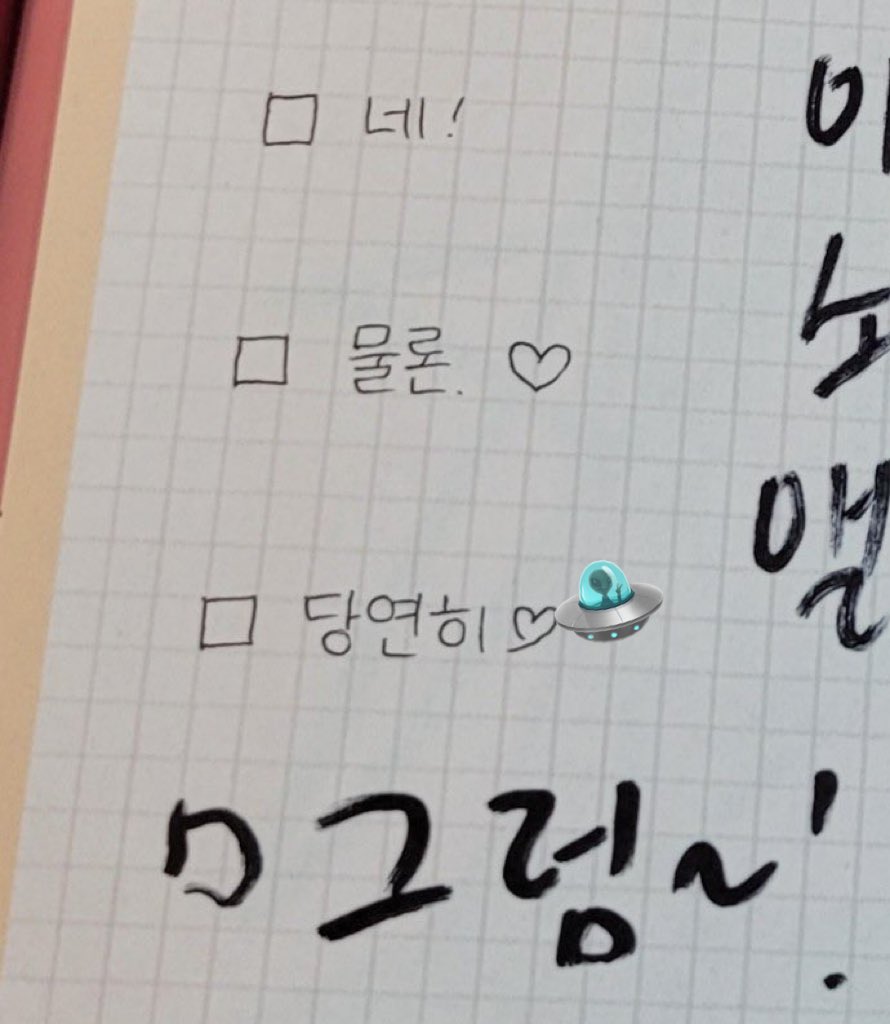 □ 네!
□ 물론. ♡
□ 당연히 ♡
□ 그럼~!